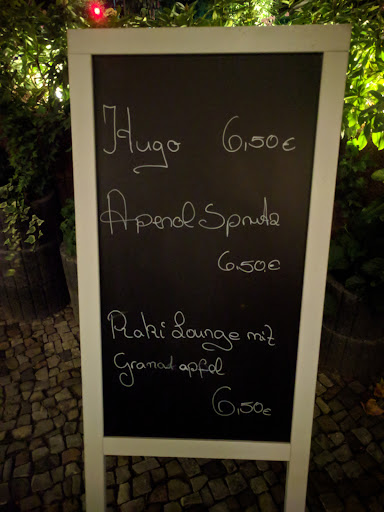 Hugo 6,50€
Aperol Sprutz
6.50€
Raki Lounge mit
Granatapfel
6,50€